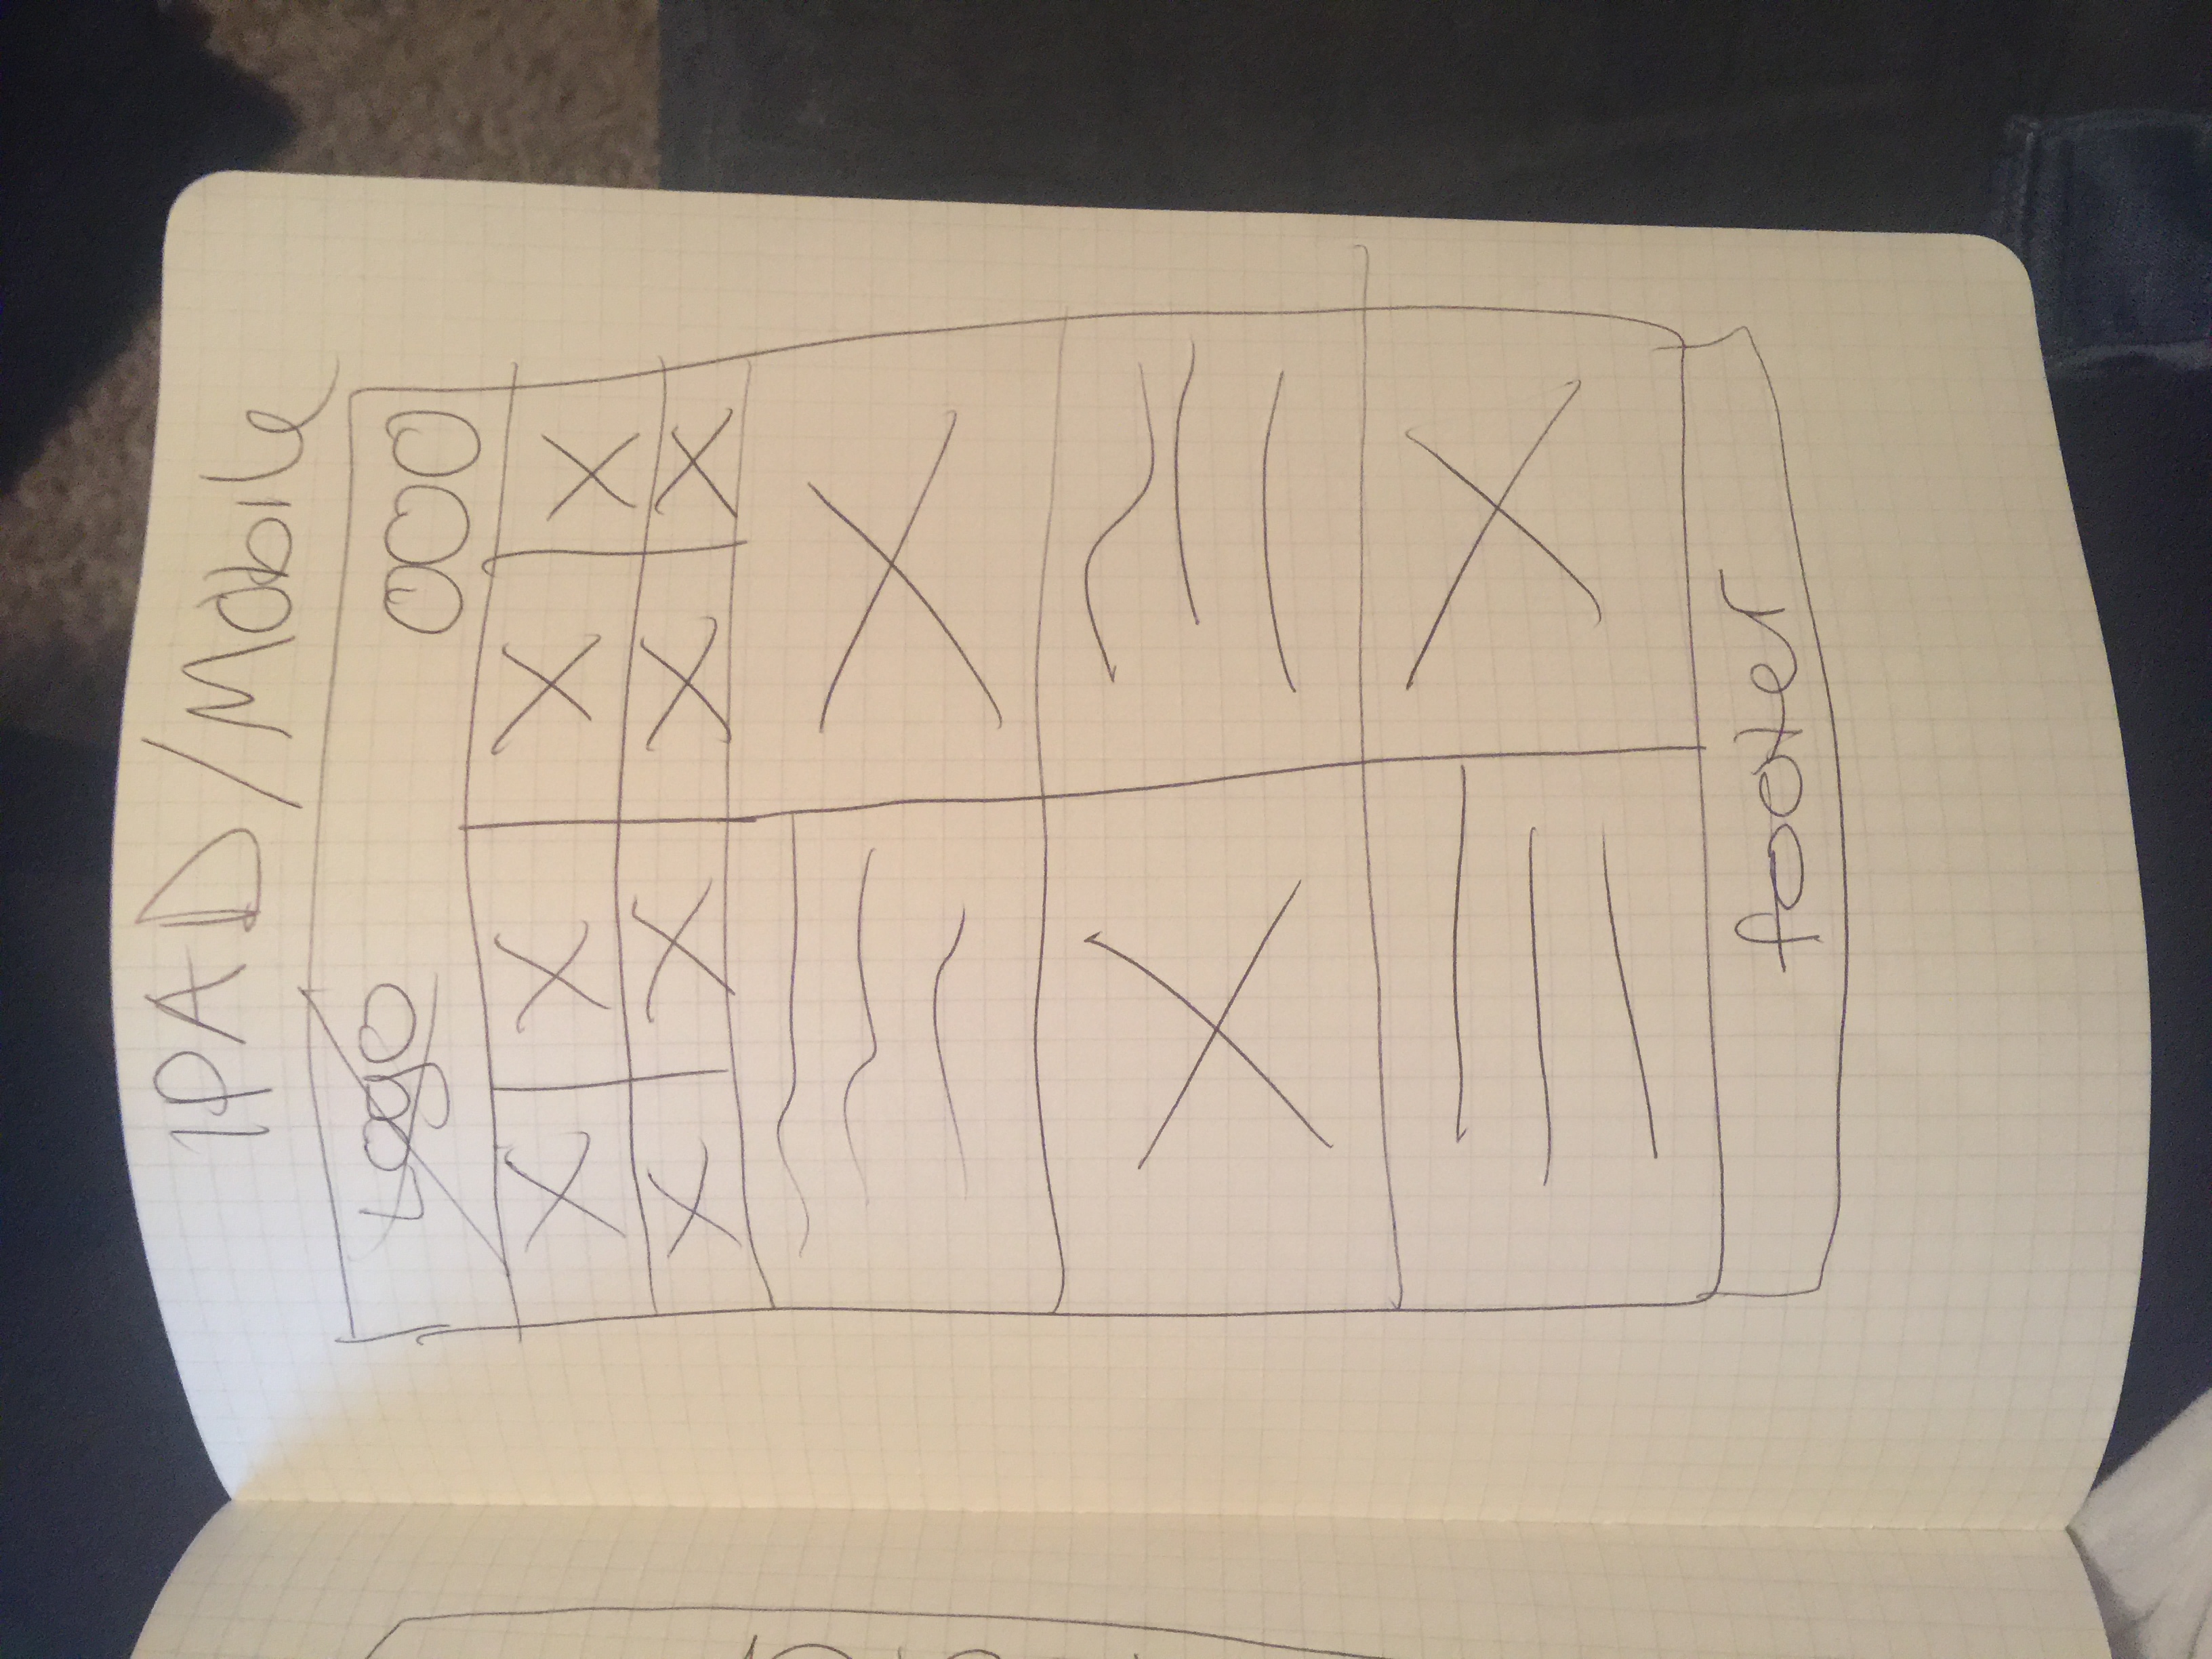 IPAD / Mobile
Logo
footer